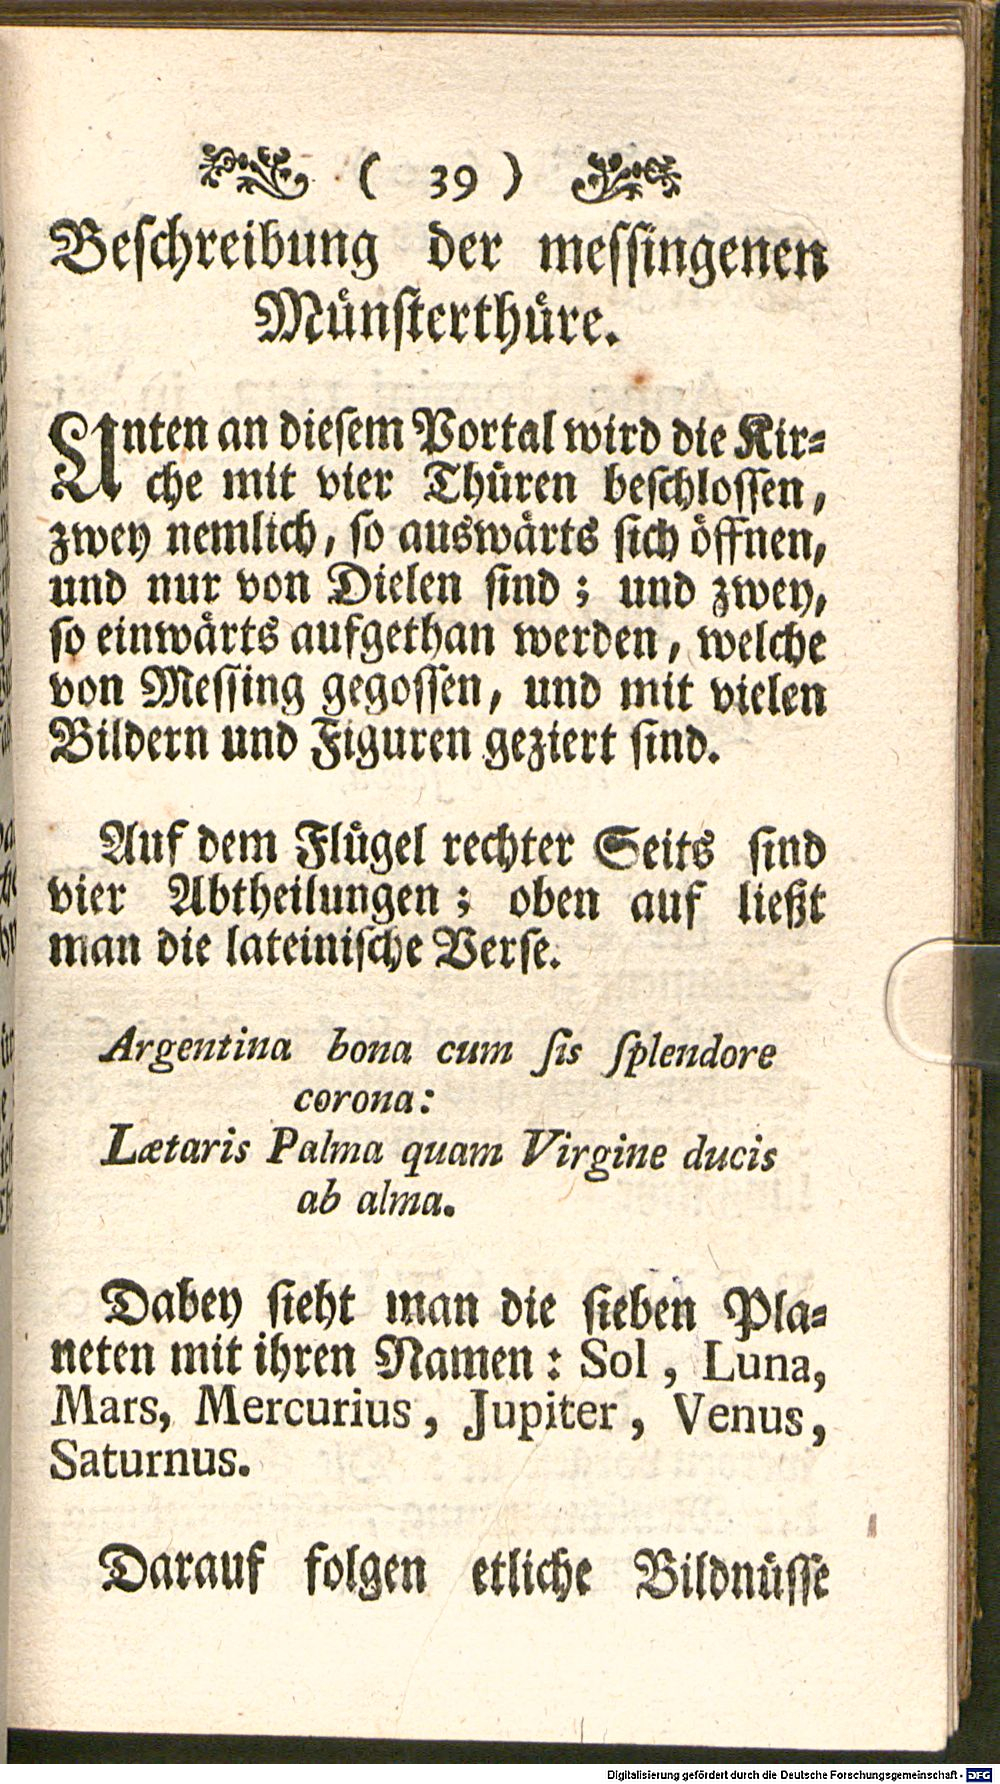 ( 39 )
Beſchreibung der meſſingenen
Münſterthüre.
Unten an dieſem Portal wird die Kir=
che mit vier Thüren beſchloſſen,
zwey nemlich, ſo auswärts ſich öffnen,
und nur von Dielen ſind; und zwey,
ſo einwärts aufgethan werden, welche
von Meſſing gegoſſen, und mit vielen
Bildern und Figuren geziert ſind.
Auf dem Flügel rechter Seits ſind
vier Abtheilungen; oben auf ließt
man die lateiniſche Verſe.
Argentina bona cum ſis ſplendore
corona:
Lætaris Palma quam Virgine ducis
ab alma.
Dabey ſieht man die ſieben Pla=
neten mit ihren Namen: Sol, Luna,
Mars, Mercurius, Jupiter, Venus,
Saturnus.
Darauf folgen etliche Bildnüſſe
Digitalisierung gefördert durch die Deutsche Forschungsgemeinschaft - DFG